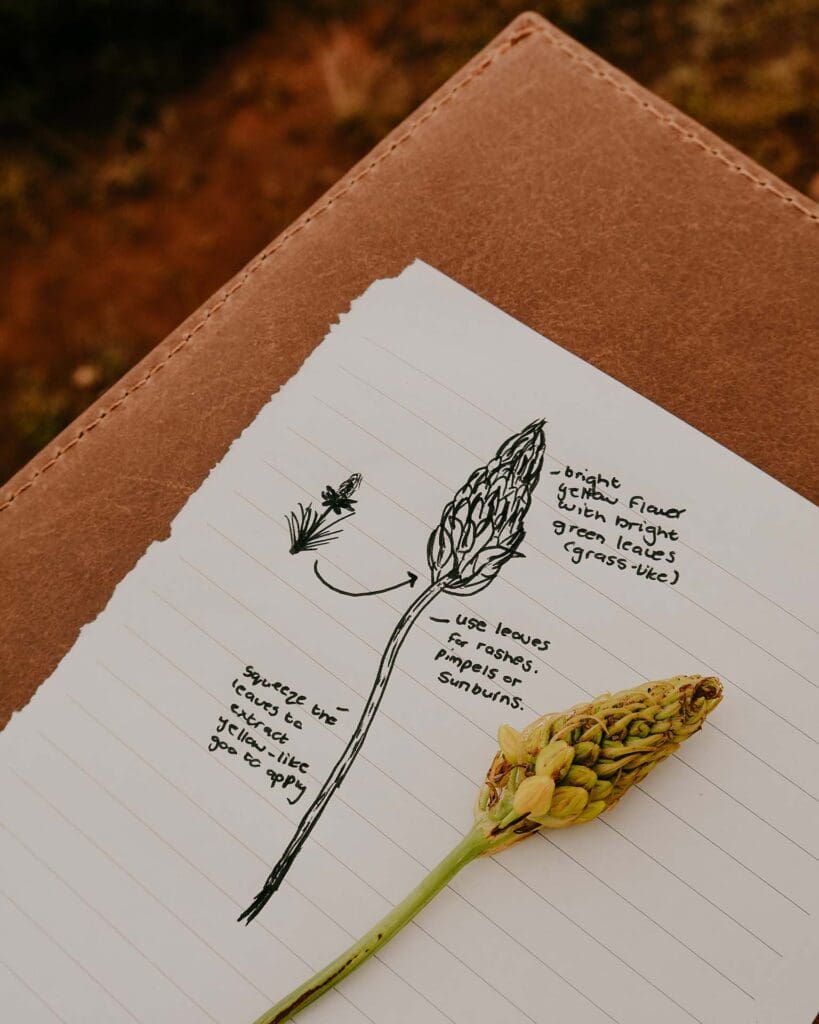 - bright
yellow flower
with bright
green leaves
(grass-like)
- use leaves
for rashes.
pimpels or
sunburns.
squeeze the -
leaves to
extract
yellow-like
goo to apply